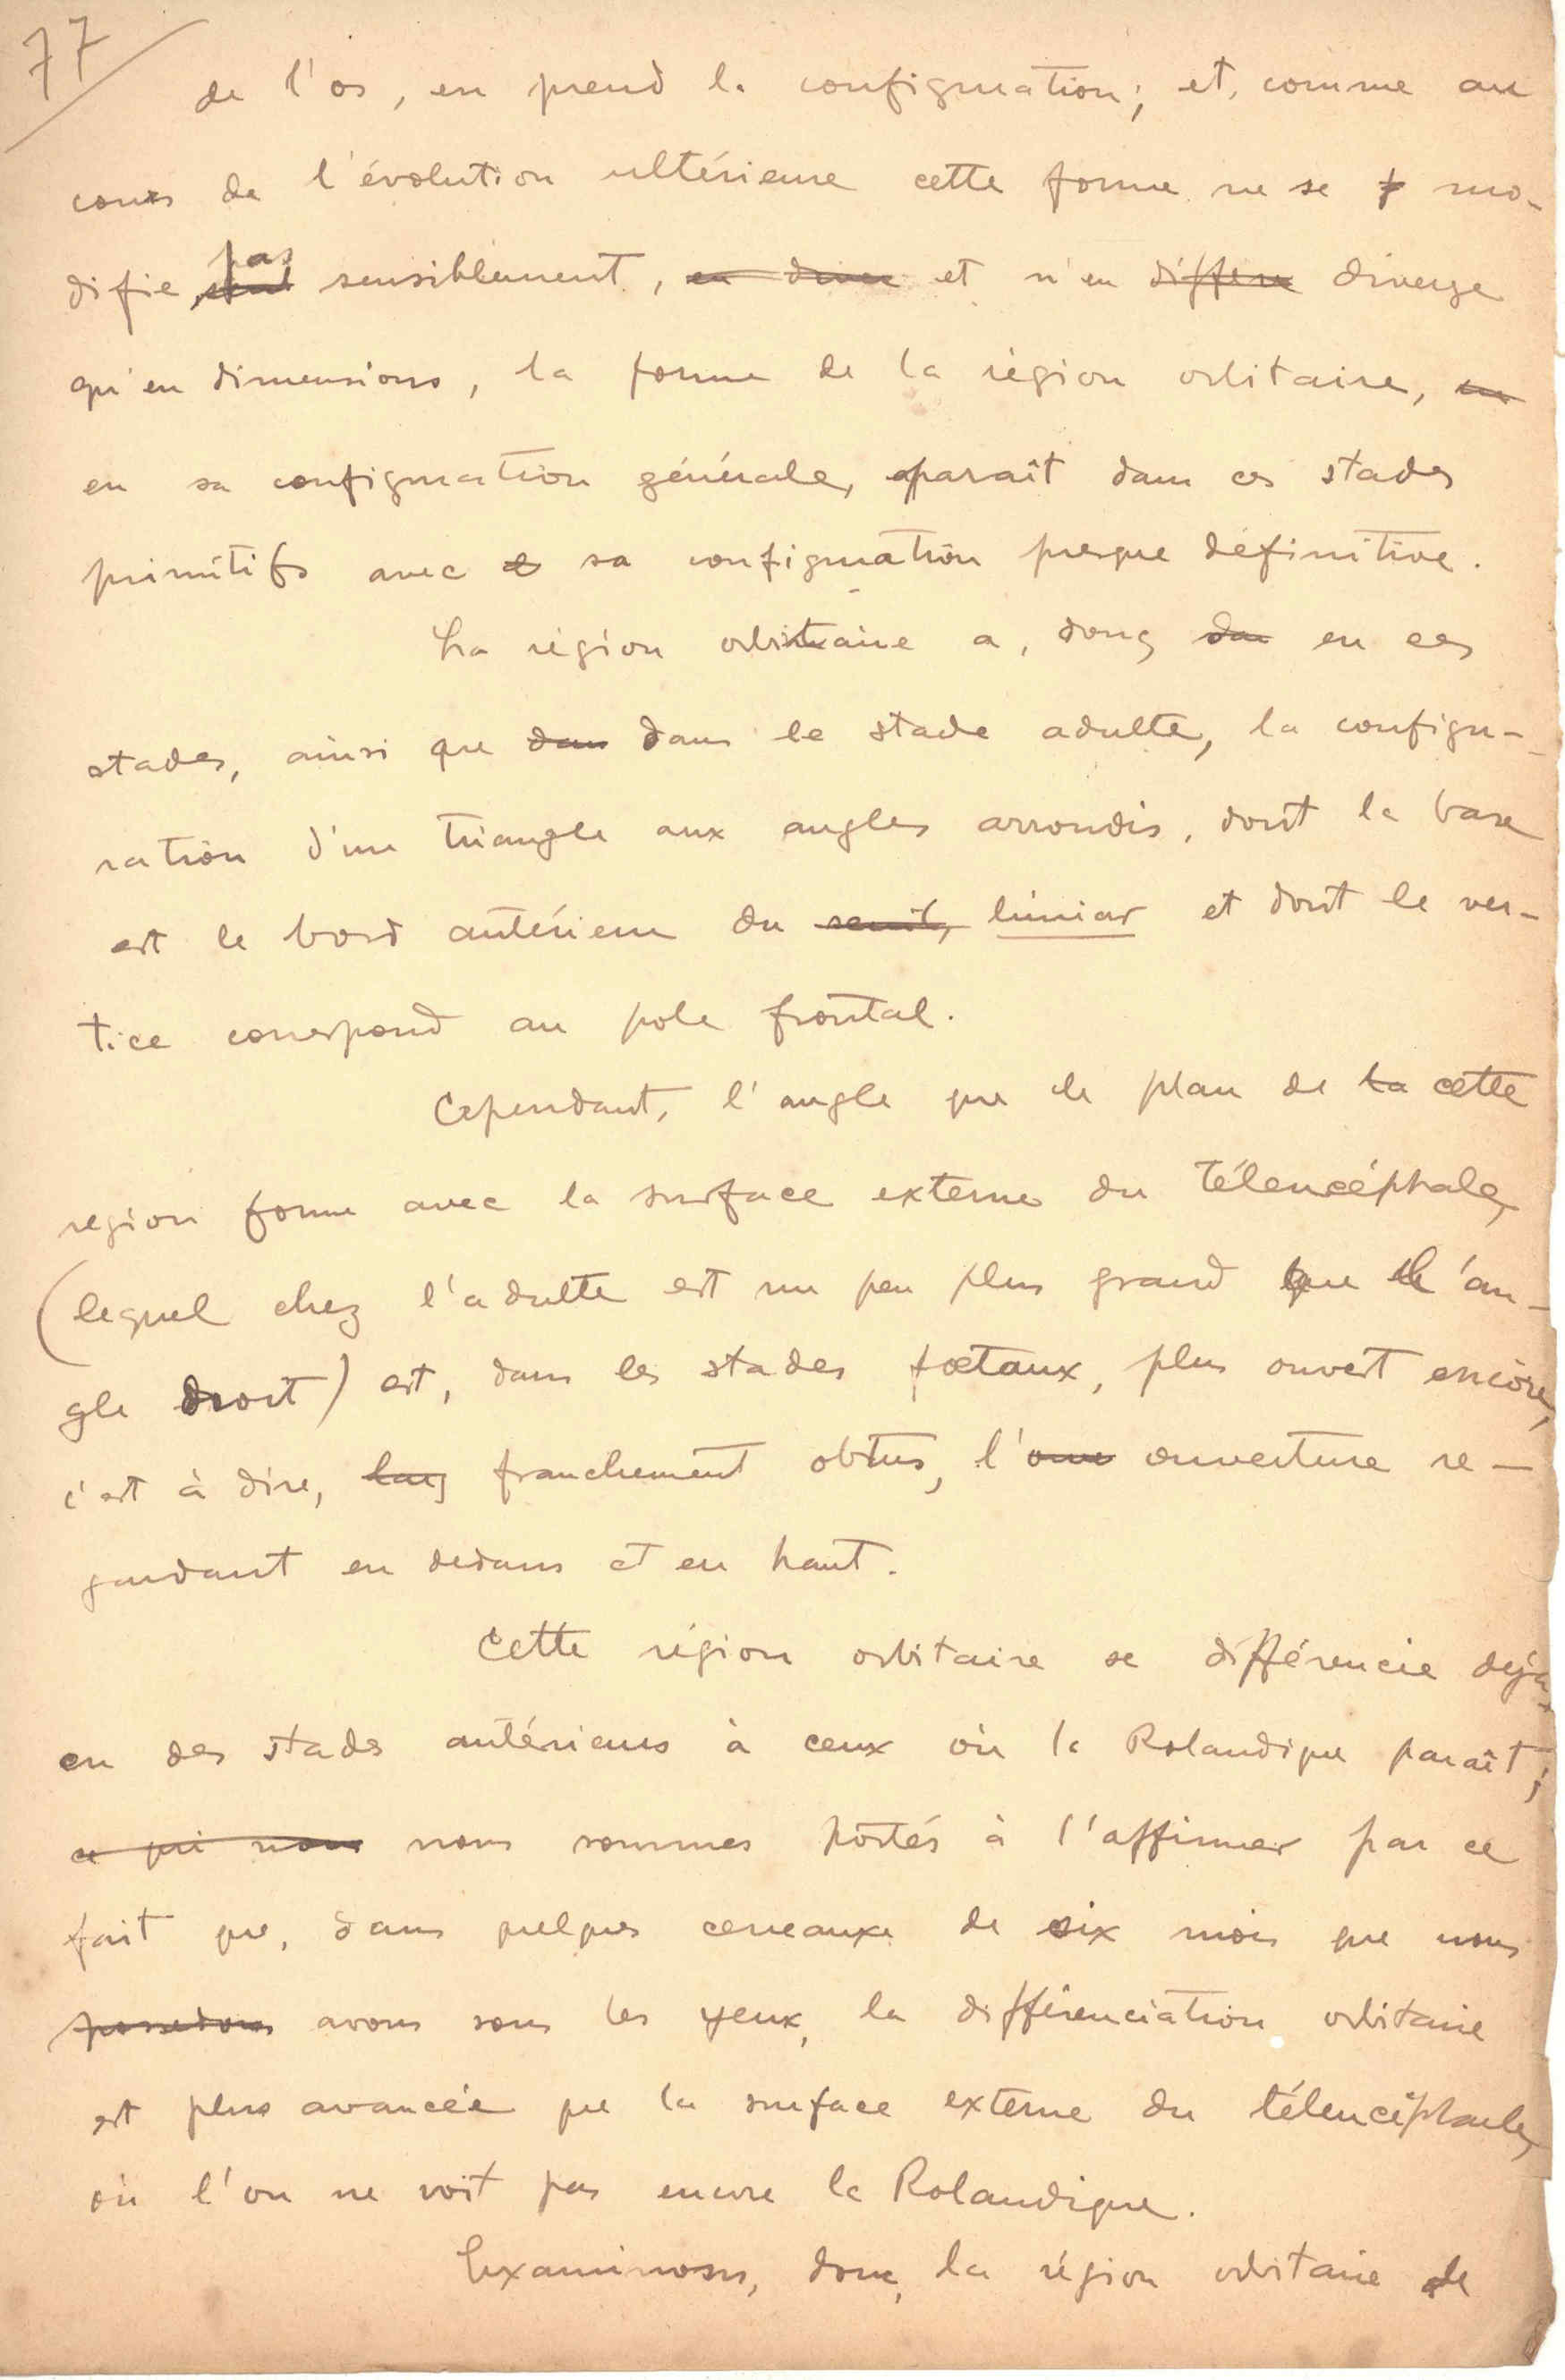 77
de l'os, en prend la configuration; et, comme au
cours de l'évolution ultérieure cette forme ne se mo-
difie pas sensiblement, en diver et n'en differe diverge
qu'en dimensions, la forme de la région orbitaire, en
en sa configuration générale, aparaît dans ces stades
primitifs avec sa configuration presque définitive.
La région orbitaire a, donc, dan en ces
stades, ainsi que dans dans le stade adulte, la configu-
ration d'un triangle aux angles arrondis, dont la base
est le bord antérieur du seuil, limiar et dont le ver-
tice correspond au pole frontal.
Cependant, l'angle que le plan de la cette
region forme avec la surface externe du télencéphale,
(lequel chez l'adulte est un peu plus grand que l'an-
gle droit) est, dans les stades fœtaux, plus ouvert encore,
c'est à dire, larg franchement obtus, l'ouve ouverture re-
gardant en dedans et en haut.
Cette région orbitaire se différencie dejà
en des stades antérieurs à ceux où le Rolandique paraît;
ce qui nous nous sommes portés à l'affirmer par ce
fait que, dans quelques cerveaux de six mois que nous
possedons avons sous les yeux, la différenciation orbitaire
est plus avancée que la surface externe du télencéphale,
où l'on ne voit pas encore le Rolandique.
Examinons, donc, la région orbitaire de